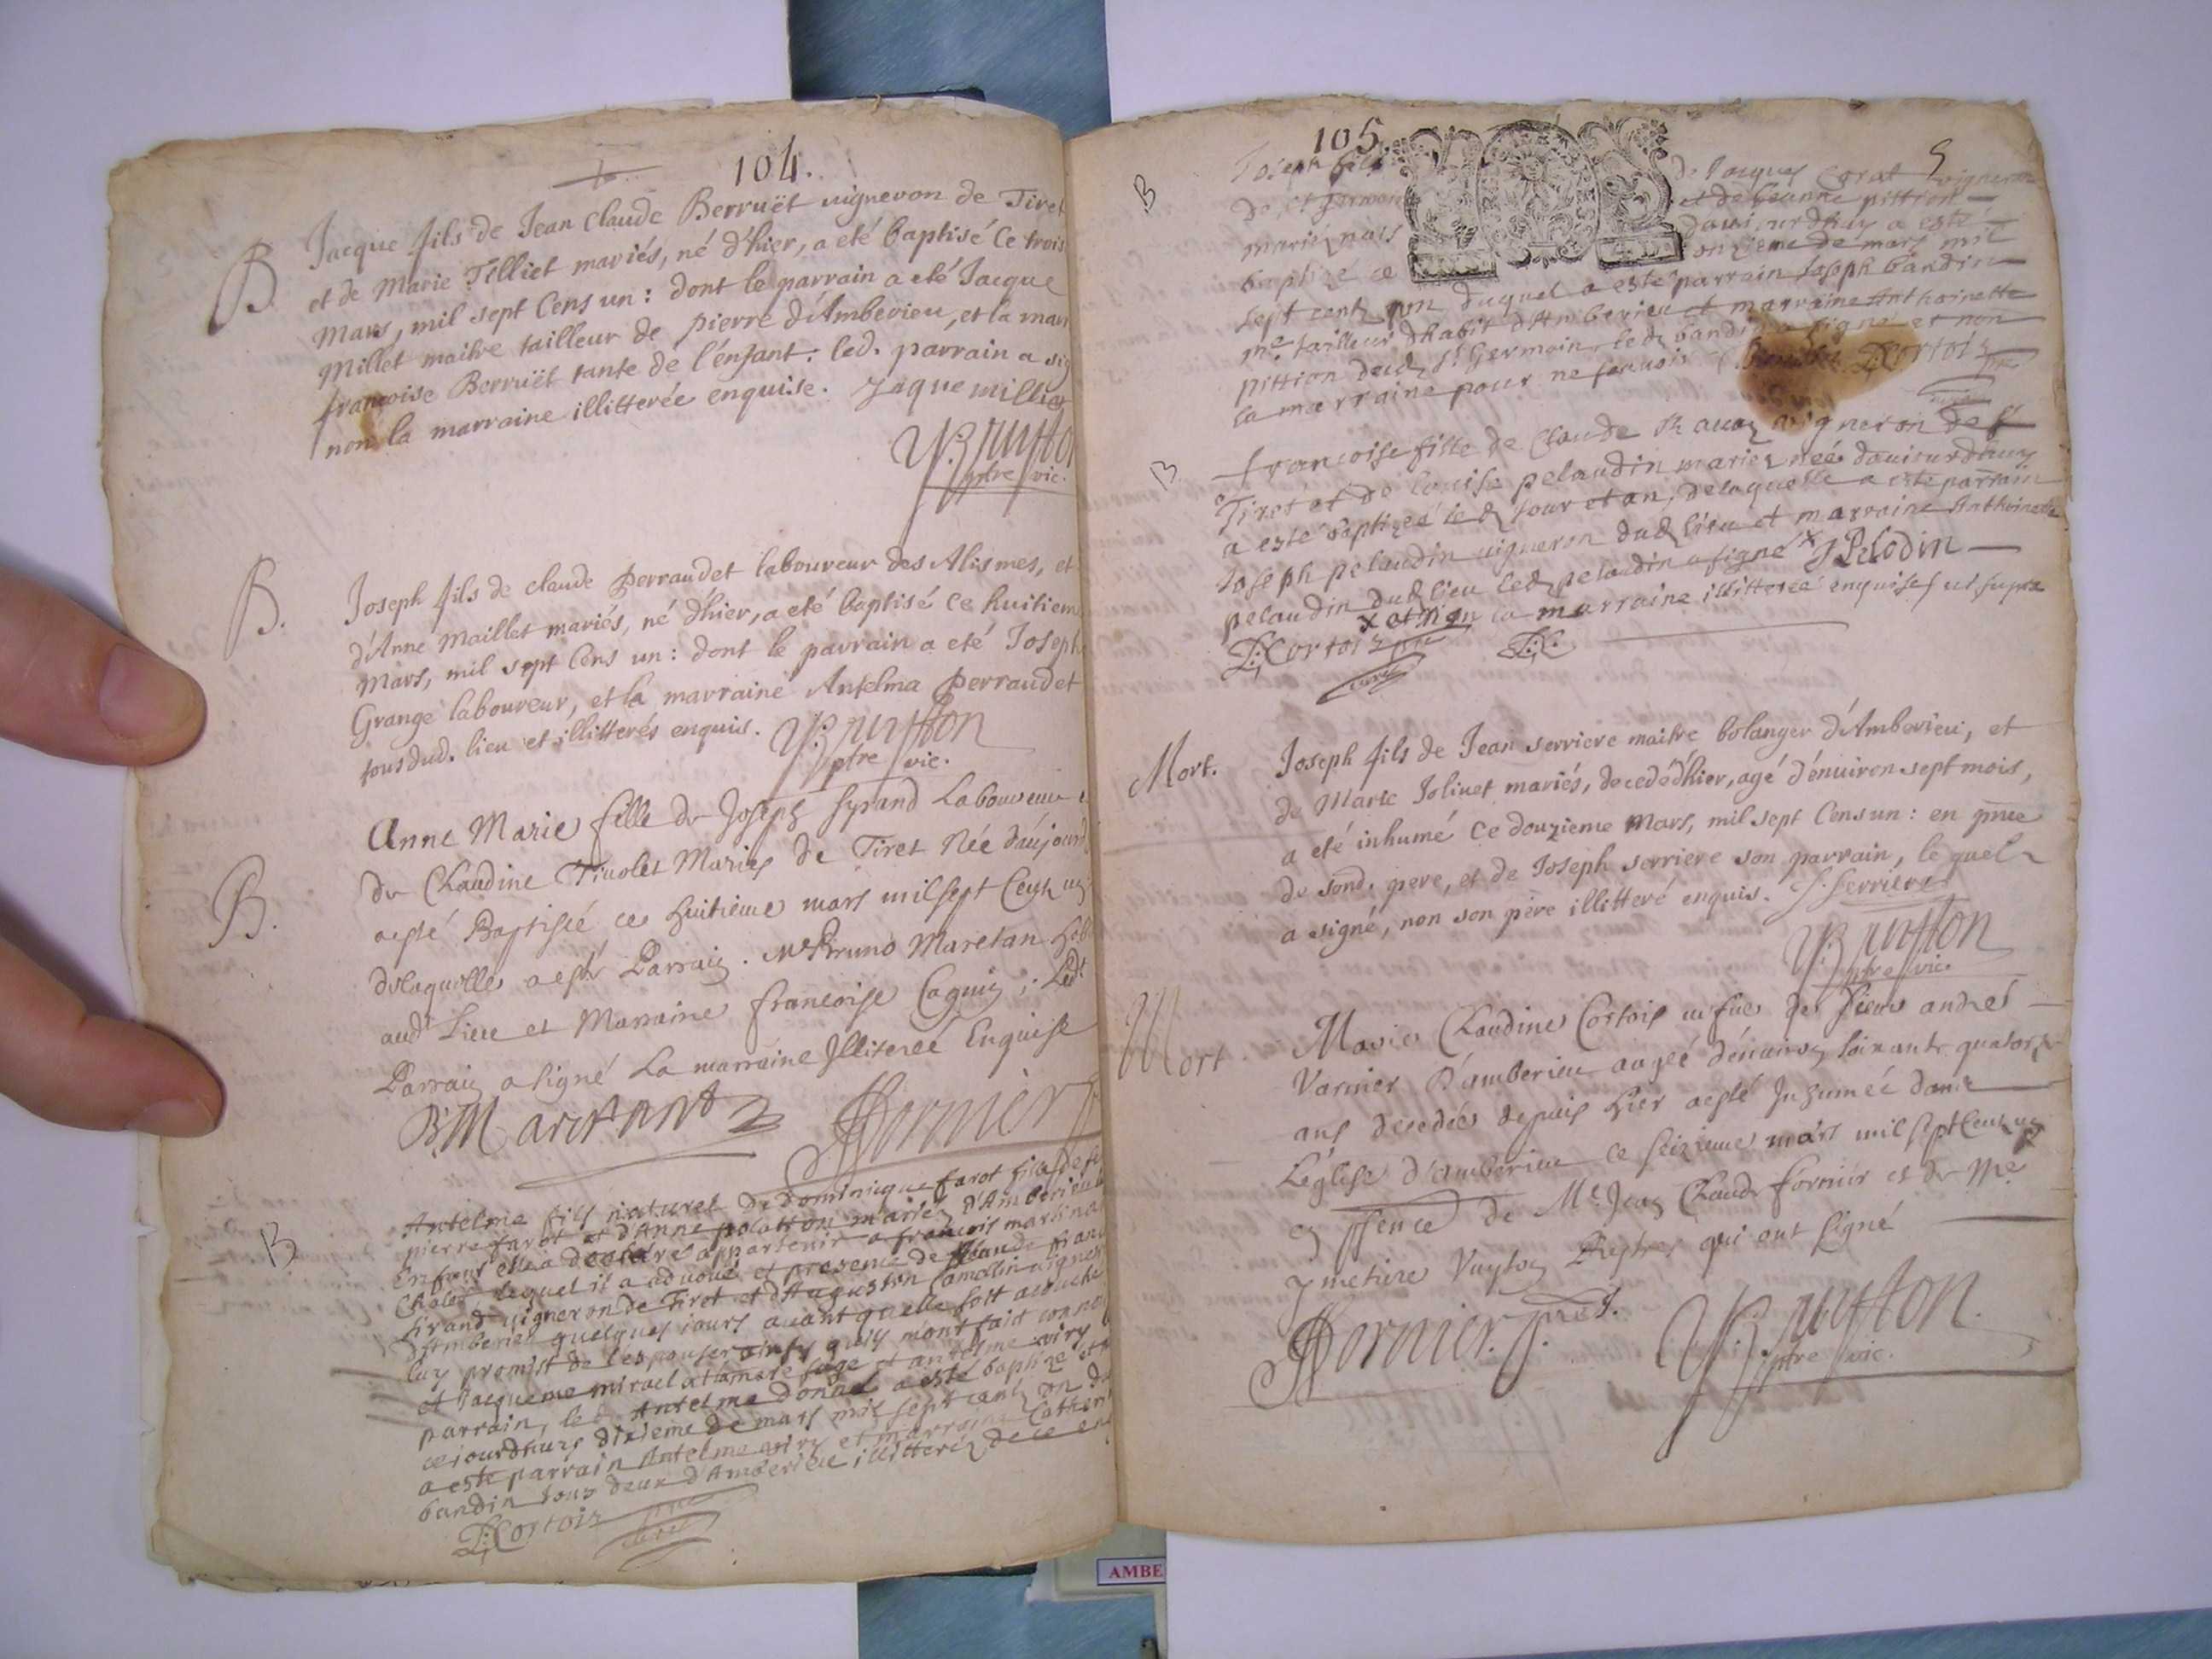 104.
B. Jacque fils de Jean Claude Berruët vigneron de Tiret
et de Marie Tilliet mariés, né d'hier, a eté baptisé ce trois
Mars, mil sept Cens un : dont le parrain a eté Jacque
Millet maitre tailleur de pierre d'Amberieu, et la mar
françoise Berruët tante de l'enfant. led. parrain a sig
non la marraine illitterée enquise. Jaque millies
ptre vic.
B. Joseph fils de claude Perraudet laboureur des Alismes, et
d'Anne Maillet mariés, né d'hier, a eté baptisé ce huitiem
Mars, mil sept Cens un : dont le parrain a eté Joseph
Grange laboureur, et la marraine Antelma Perraudet
tous dud. lieu et illitterés enquis.
ptre vic.
B. Anne Marie fille de Joseph Syrand Laboureur e
de Claudine Tivolet Maries de Tiret Née daujourd
a esté Baptisée ce huitieme mars mil sept Cent un
delaquelle a esté Parrain. Mr Bruno Maretan
aud Lieu et Marraine francoise Cagnin ; Led
Parrain a signé La marraine Illiterée Enquise
B. Antelme fils naturel de dominique farot fille de fe
pierre farot et d'Anne polatton mariez d'Amberieu
Enfant elle a declaré appartenir a francois
lequel il a advoué et presence de Claude
Sirand vigneron de Tiret et d'Augustin Camelin vigne
d'Amberieu quelques jours avant quelle fust acouché
luy promist de l'espouser ainsy quils m'ont faict
et Jacqueme miruel sage et antelme viry
parrain, le Antelme donné a esté baptizé et
cejourdhuy dixieme de mars mil sept cent on d
a esté parrain Antelme viry et marraine Cather
bandin tous deux d'Amberieu illitterez de ce en
L: Cortois ptre
curé
105. 5
B Joseph fils de Jacques Corat vigneron
de St Germain et de Jeanne pittion
mariez nais daujourdhuy a esté
baptizé ce onzieme de mars mil
sept cent on duquel a esté parrain Joseph bandin
me tailleur dhabit d'Amberieu et marraine Anthoinette
pittion dud St Germain, led bandin a signé et non
la marraine pour ne scavoir Cortois
B. francoise fille de Claude vigneron de
Tiret et de louise pelaudin mariez née daujourdhuy
a esté baptizée led jour et an, delaquelle a esté parrain
Joseph pelaudin vigneron dud lieu et marraine Anthoinette
pelaudin dud lieu led pelaudin a signé x J Pelodin
x et non la marraine illitterée enquise ut supra
L: Cortois ptre L:C.
curé
Mort. Joseph fils de Jean serriere maitre bolanger d'Amberieu, et
de Marie Jolivet mariés, decedé d'hier, agé d'environ sept mois,
a eté inhumé ce douzieme Mars, mil sept Cens un : en pnce
de sond. pere, et de Joseph serriere son parrain, le quel
a signé, non son père illitteré enquis. J. serriere
ptre vic.
Mort. Marie Claudine Cortois vefve de sieur andré
Varnier D'amberieu aagéé denviron soixante quatorze
ans decedée depuis hier a esté Inhumée dans
Léglise d'amberieu ce seizieme mars mil sept Cent un
en psence de Mr Jean Claude fornier et de Me
ymetiere Vuyton Prestres qui ont signé
Fornier. ptre.
ptre vic.
AMBE